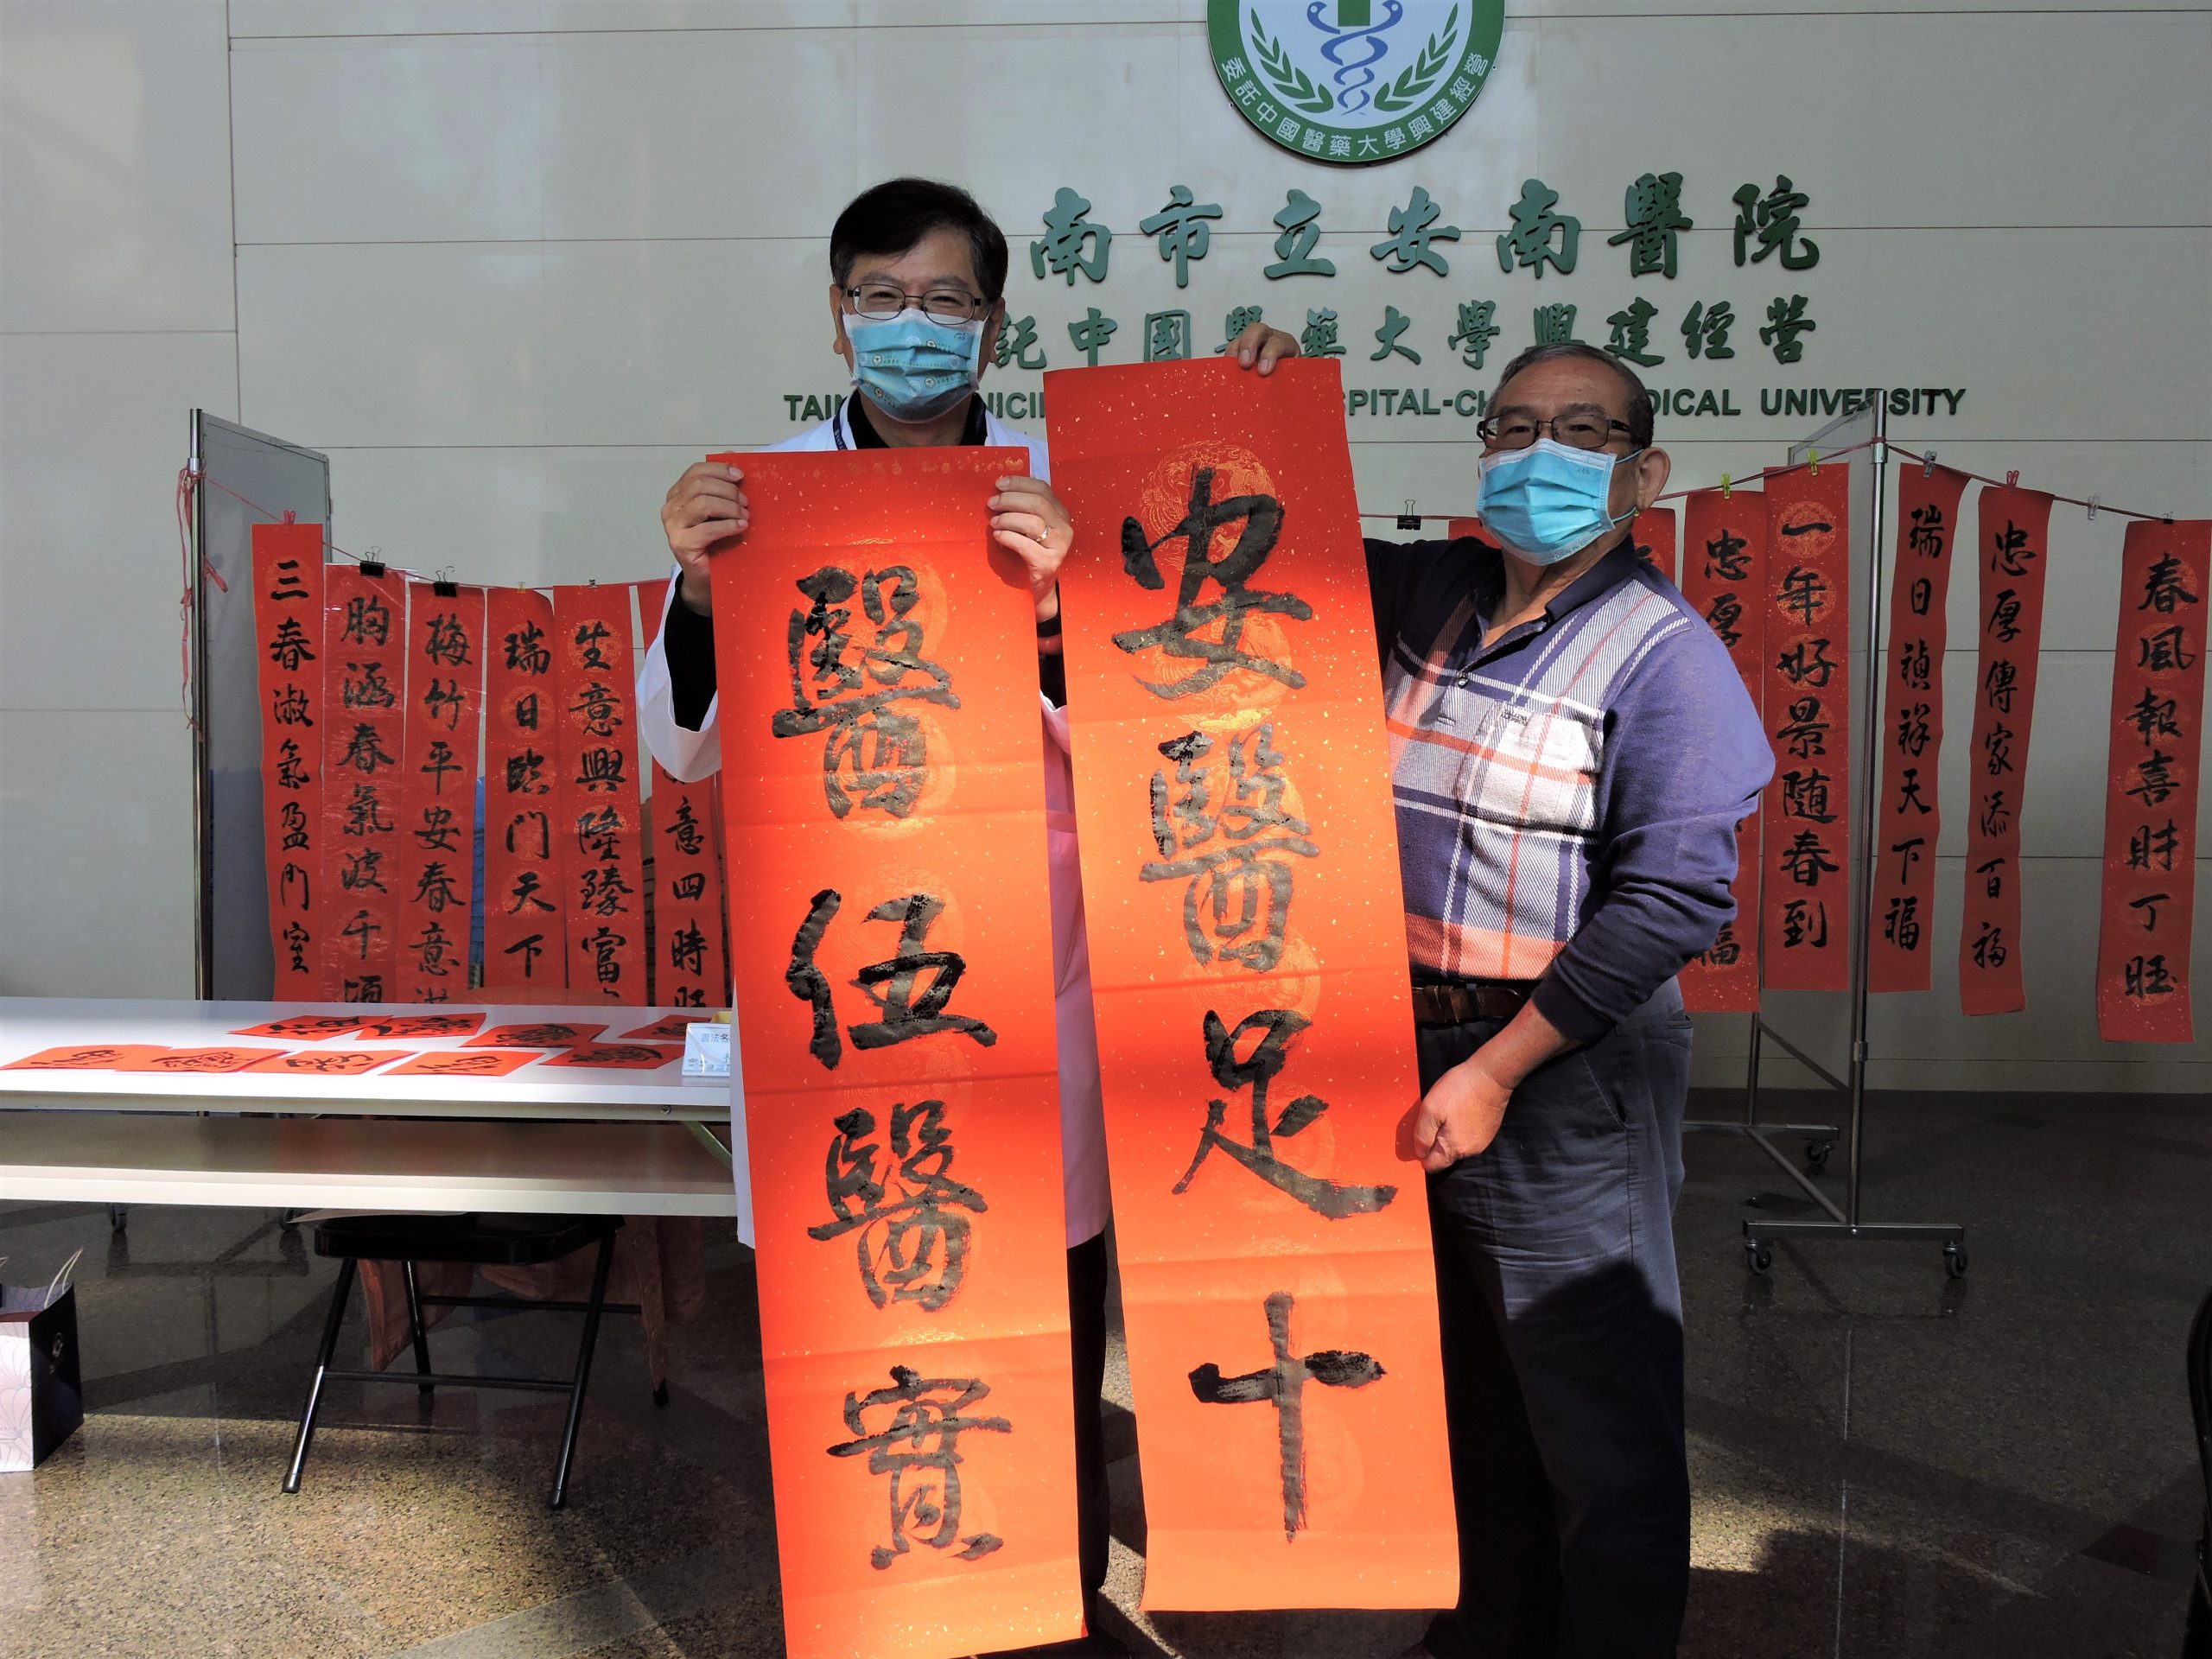 委託中國醫藥大學興建經營
南市立安南醫院
託中國醫藥大學興建經營
TAIN NICI SPITAL-CH DICAL UNIVERSITY
安醫足十
醫伍醫實
三春淑氣盈門室
胸涵春氣波千頃
梅竹平安春意
瑞日臨門天下
生意興隆臻富
意四時旺
忠厚 福
一年好景隨春到
瑞日禎祥天下福
忠厚傳家添百福
春風報喜財丁旺